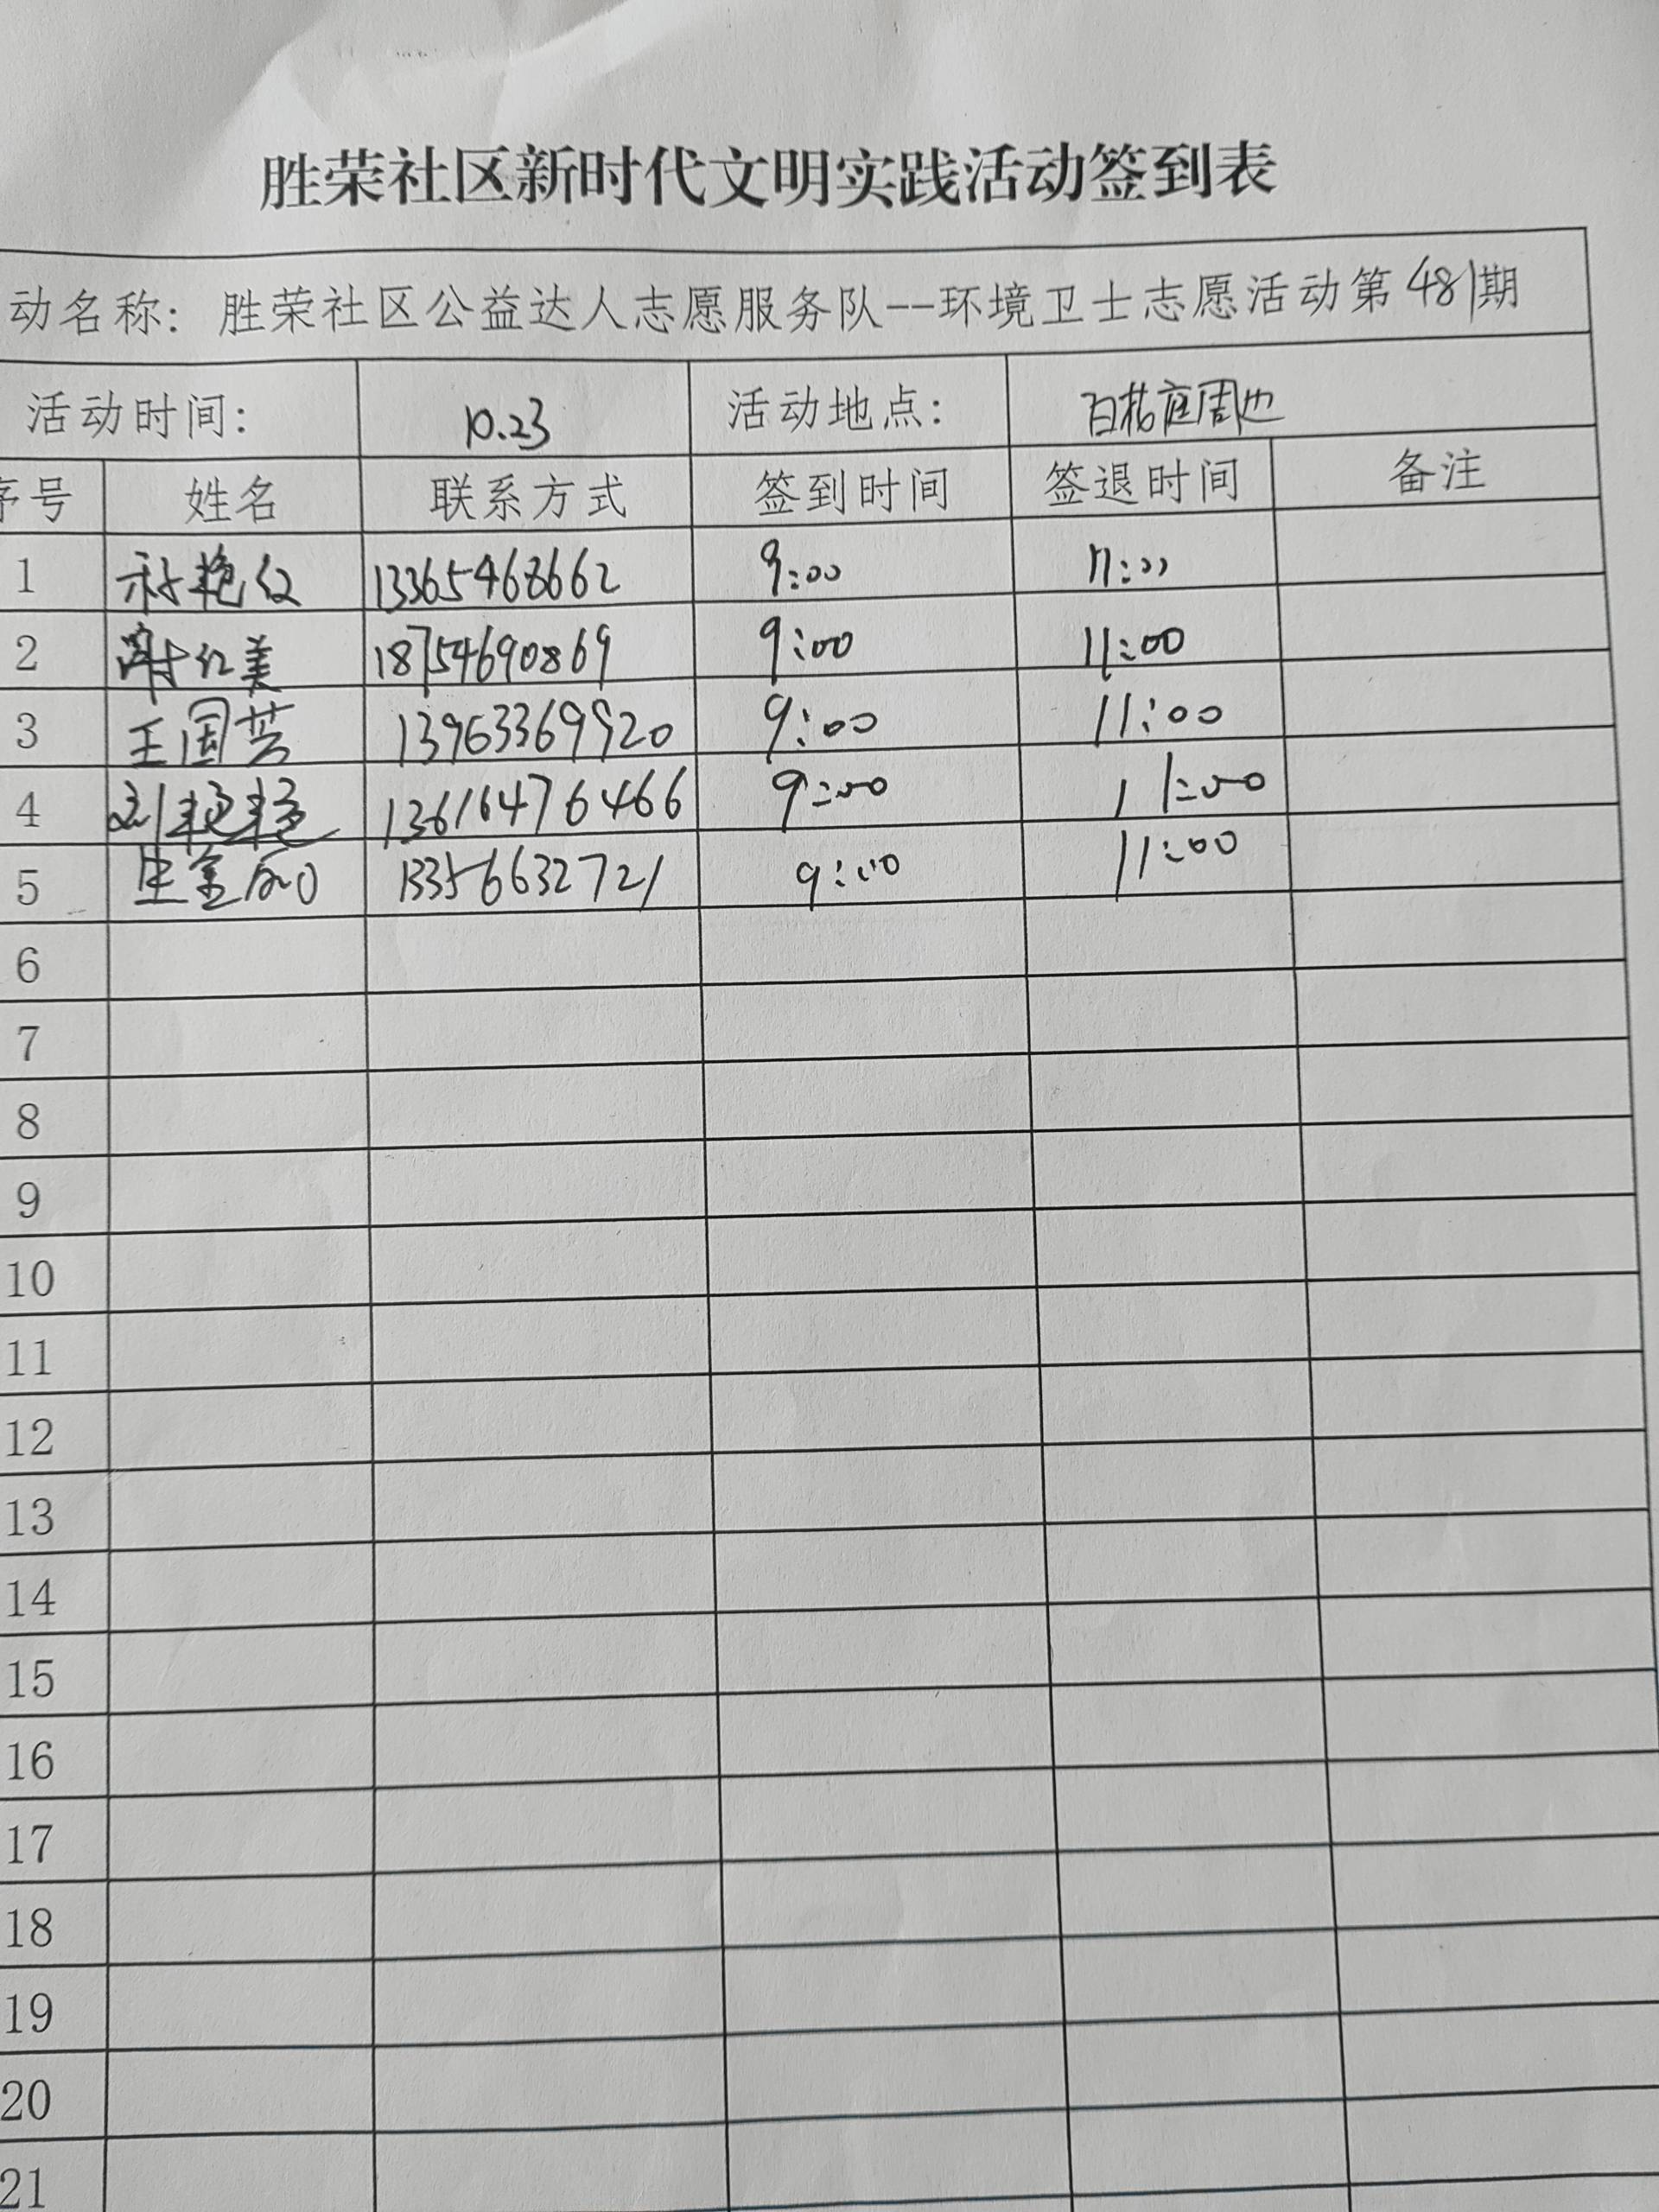 胜荣社区新时代文明实践活动签到表
动名称：胜荣社区公益达人志愿服务队--环境卫士志愿活动第481期
活动时间： 10.23 活动地点： 周边
序号 姓名 联系方式 签到时间 签退时间 备注
1 13365468662 9:00 11:00
2 谢红美 18754690869 9:00 11:00
3 王国芸 13963369920 9:00 11:00
4 刘艳艳 13616476466 9:00 11:00
5 13356632721 9:00 11:00
6
7
8
9
10
11
12
13
14
15
16
17
18
19
20
21